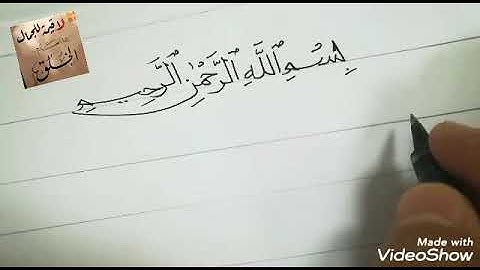 لا قيمة للجمال
الخلق
بِسْمِ ٱللَّهِ ٱلرَّحْمَٰنِ ٱلرَّحِيمِ
Made with
VideoShow